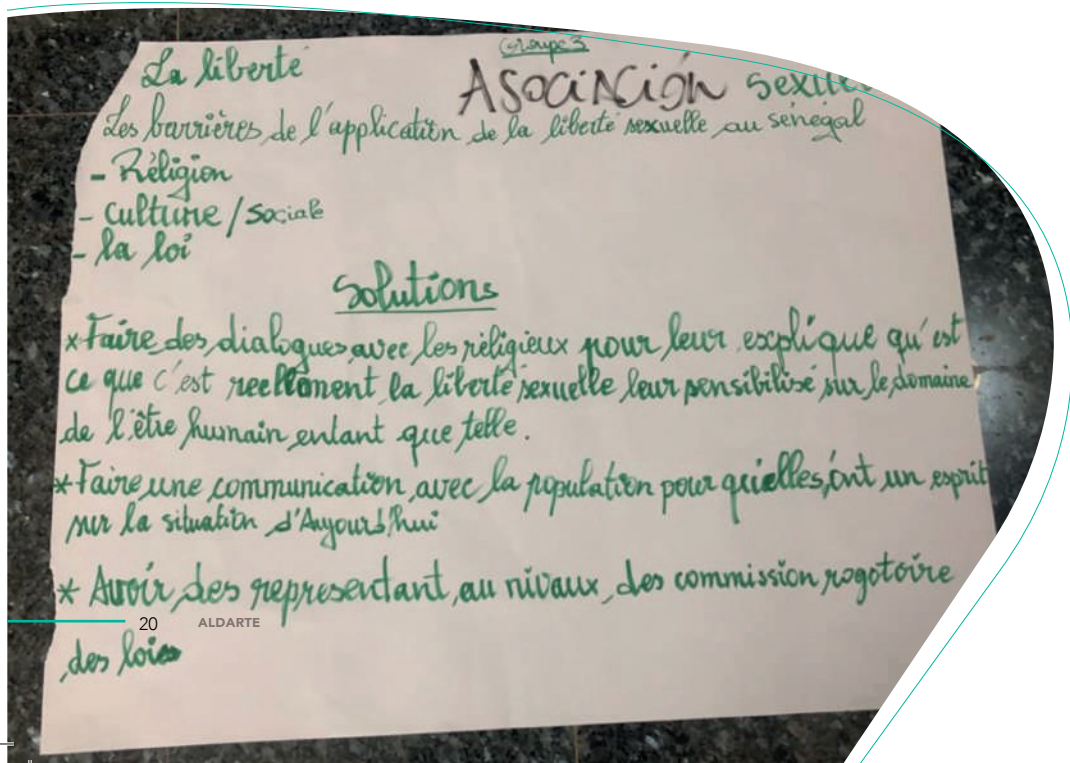 Groupe 3
La liberté
ASOCIACIÓN
Les barrières de l'application de la liberté sexuelle au sénégal
- Réligion
- Culture / Sociale
- la loi
Solutions
* Faire des dialogues avec les réligieux pour leur explique qu'est
ce que c'est reellement la liberté sexuelle leur sensibilisé sur le domaine
de l'être humain entant que telle.
* Faire une communication avec la population pour qu'elles ont un esprit
sur la situation d'Aujourd'hui
* Avoir des representant au nivaux des commission rogotoire
des lois
20 ALDARTE